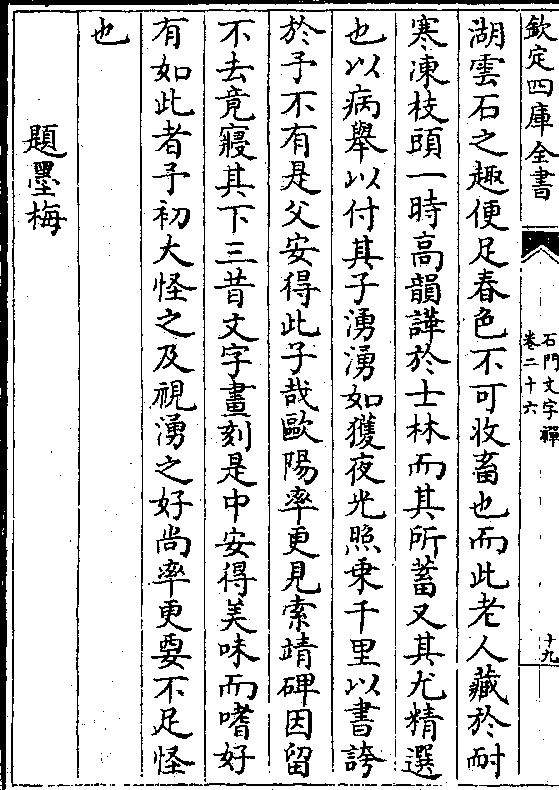 欽定四庫全書
石門文字禪
卷二十六
十九
湖雲石之趣便足春色不可收畜也而此老人藏於耐
寒凍枝頭一時高韻譁於士林而其所蓄又其尤精選
也以病舉以付其子湧湧如獲夜光照乗千里以書誇
於予不有是父安得此子哉歐陽率更見索靖碑因留
不去竟寢其下三昔文字畫刻是中安得美味而嗜好
有如此者予初大怪之及視湧之好尚率更要不足怪
也
題墨梅